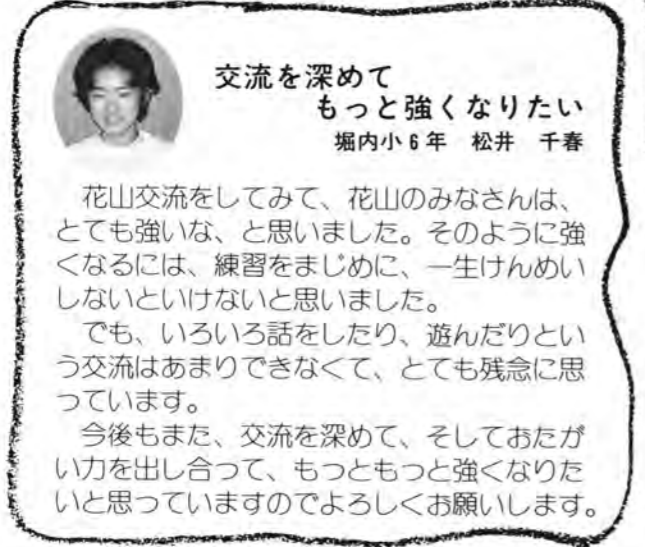 交流を深めて
もっと強くなりたい
堀内小6年 松井 千春
花山交流をしてみて、花山のみなさんは、
とても強いな、と思いました。そのように強
くなるには、練習をまじめに、一生けんめい
しないといけないと思いました。
でも、いろいろ話をしたり、遊んだりとい
う交流はあまりできなくて、とても残念に思
っています。
今後もまた、交流を深めて、そしておたが
い力を出し合って、もっともっと強くなりた
いと思っていますのでよろしくお願いします。